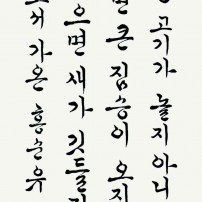 고기가 놀지아니
면 큰 짐승이 오지
으면 새가 깃들
가온 홍순유